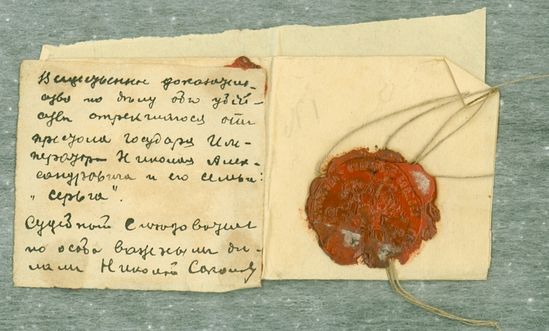 Вещественное доказатель-
ство по дѣлу объ убій-
ствѣ отрекшагося отъ
престола Государя Им-
ператора Николая Алек-
сандровича и его семьи:
"Серьга".
Судебный Слѣдователь
по особо важнымъ дѣ-
ламъ Николай Соколовъ